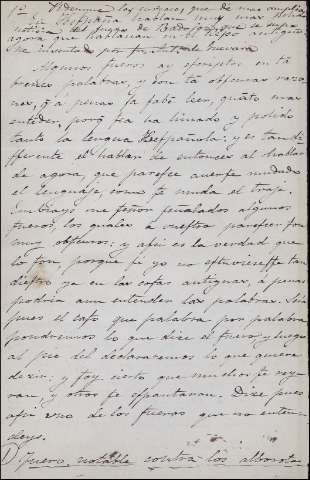 1º Pídenme las
En Hespaña hablan muy mas
noticia del fuego de Badajoz que se supo
agora que hablauan en el tiempo antiguo.
inuentado por fr. Antº de Gueuara
Algunos fueros ay escriptos en ta
breues palabras, y con ta obscuras razo
nes, q̃ a penas se sabe leer, quãto mas
enteder, porq̃ sea ha limado y polido
tanto la lengua Hespañola: y es tan di
fferente el hablar de entonces al hablar
de agora, que paresce auerse mudado
el lenguaje, como se muda el traje.
Embiays me señor señalados algunos
fueros, los quales a vuestro parescer son
muy obscuros: y assi es la verdad que
lo son porque si yo no estuviesse tan
diestro ya en las cosas antiguas, a penas
podria aun entender las palabras. Sea
pues el caso que palabra por palabra
pondremos lo que dize el fuero y luego
al pie del declararemos lo que quiere
dezir: y soy cierto que muchos se rey
ran, y otros se espantaran. Dize pues
assi uno de los fueros que no enten
deys.
1) Fuero notable contra los alborota-